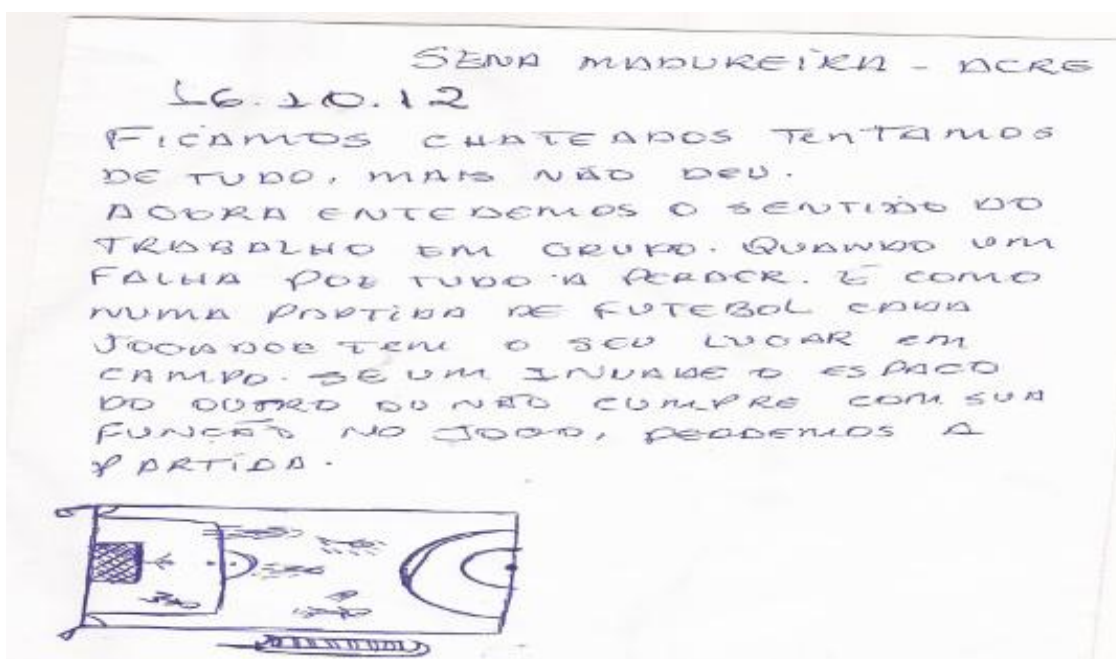 SENA MADUREIRA - ACRE
16.10.12
FICAMOS CHATEADOS TENTAMOS
DE TUDO, MAIS NÃO DEU.
AGORA ENTEDEMOS O SENTIDO DO
TRABALHO EM GRUPO. QUANDO UM
FALHA POE TUDO A PERDER. É COMO
NUMA PARTIDA DE FUTEBOL CADA
JOGADOR TEM O SEU LUGAR EM
CAMPO. SE UM INVADE O ESPAÇO
DO OUTRO OU NÃO CUMPRE COM SUA
FUNÇÃO NO JOGO, PERDEMOS A
PARTIDA.